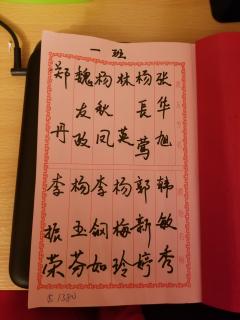 一班
张华旭
杨長莺
林英
杨秋凤
魏友政
郑丹
韩敏秀
郭新婷
杨梅玲
李钢如
杨玉芬
李振荣
1380